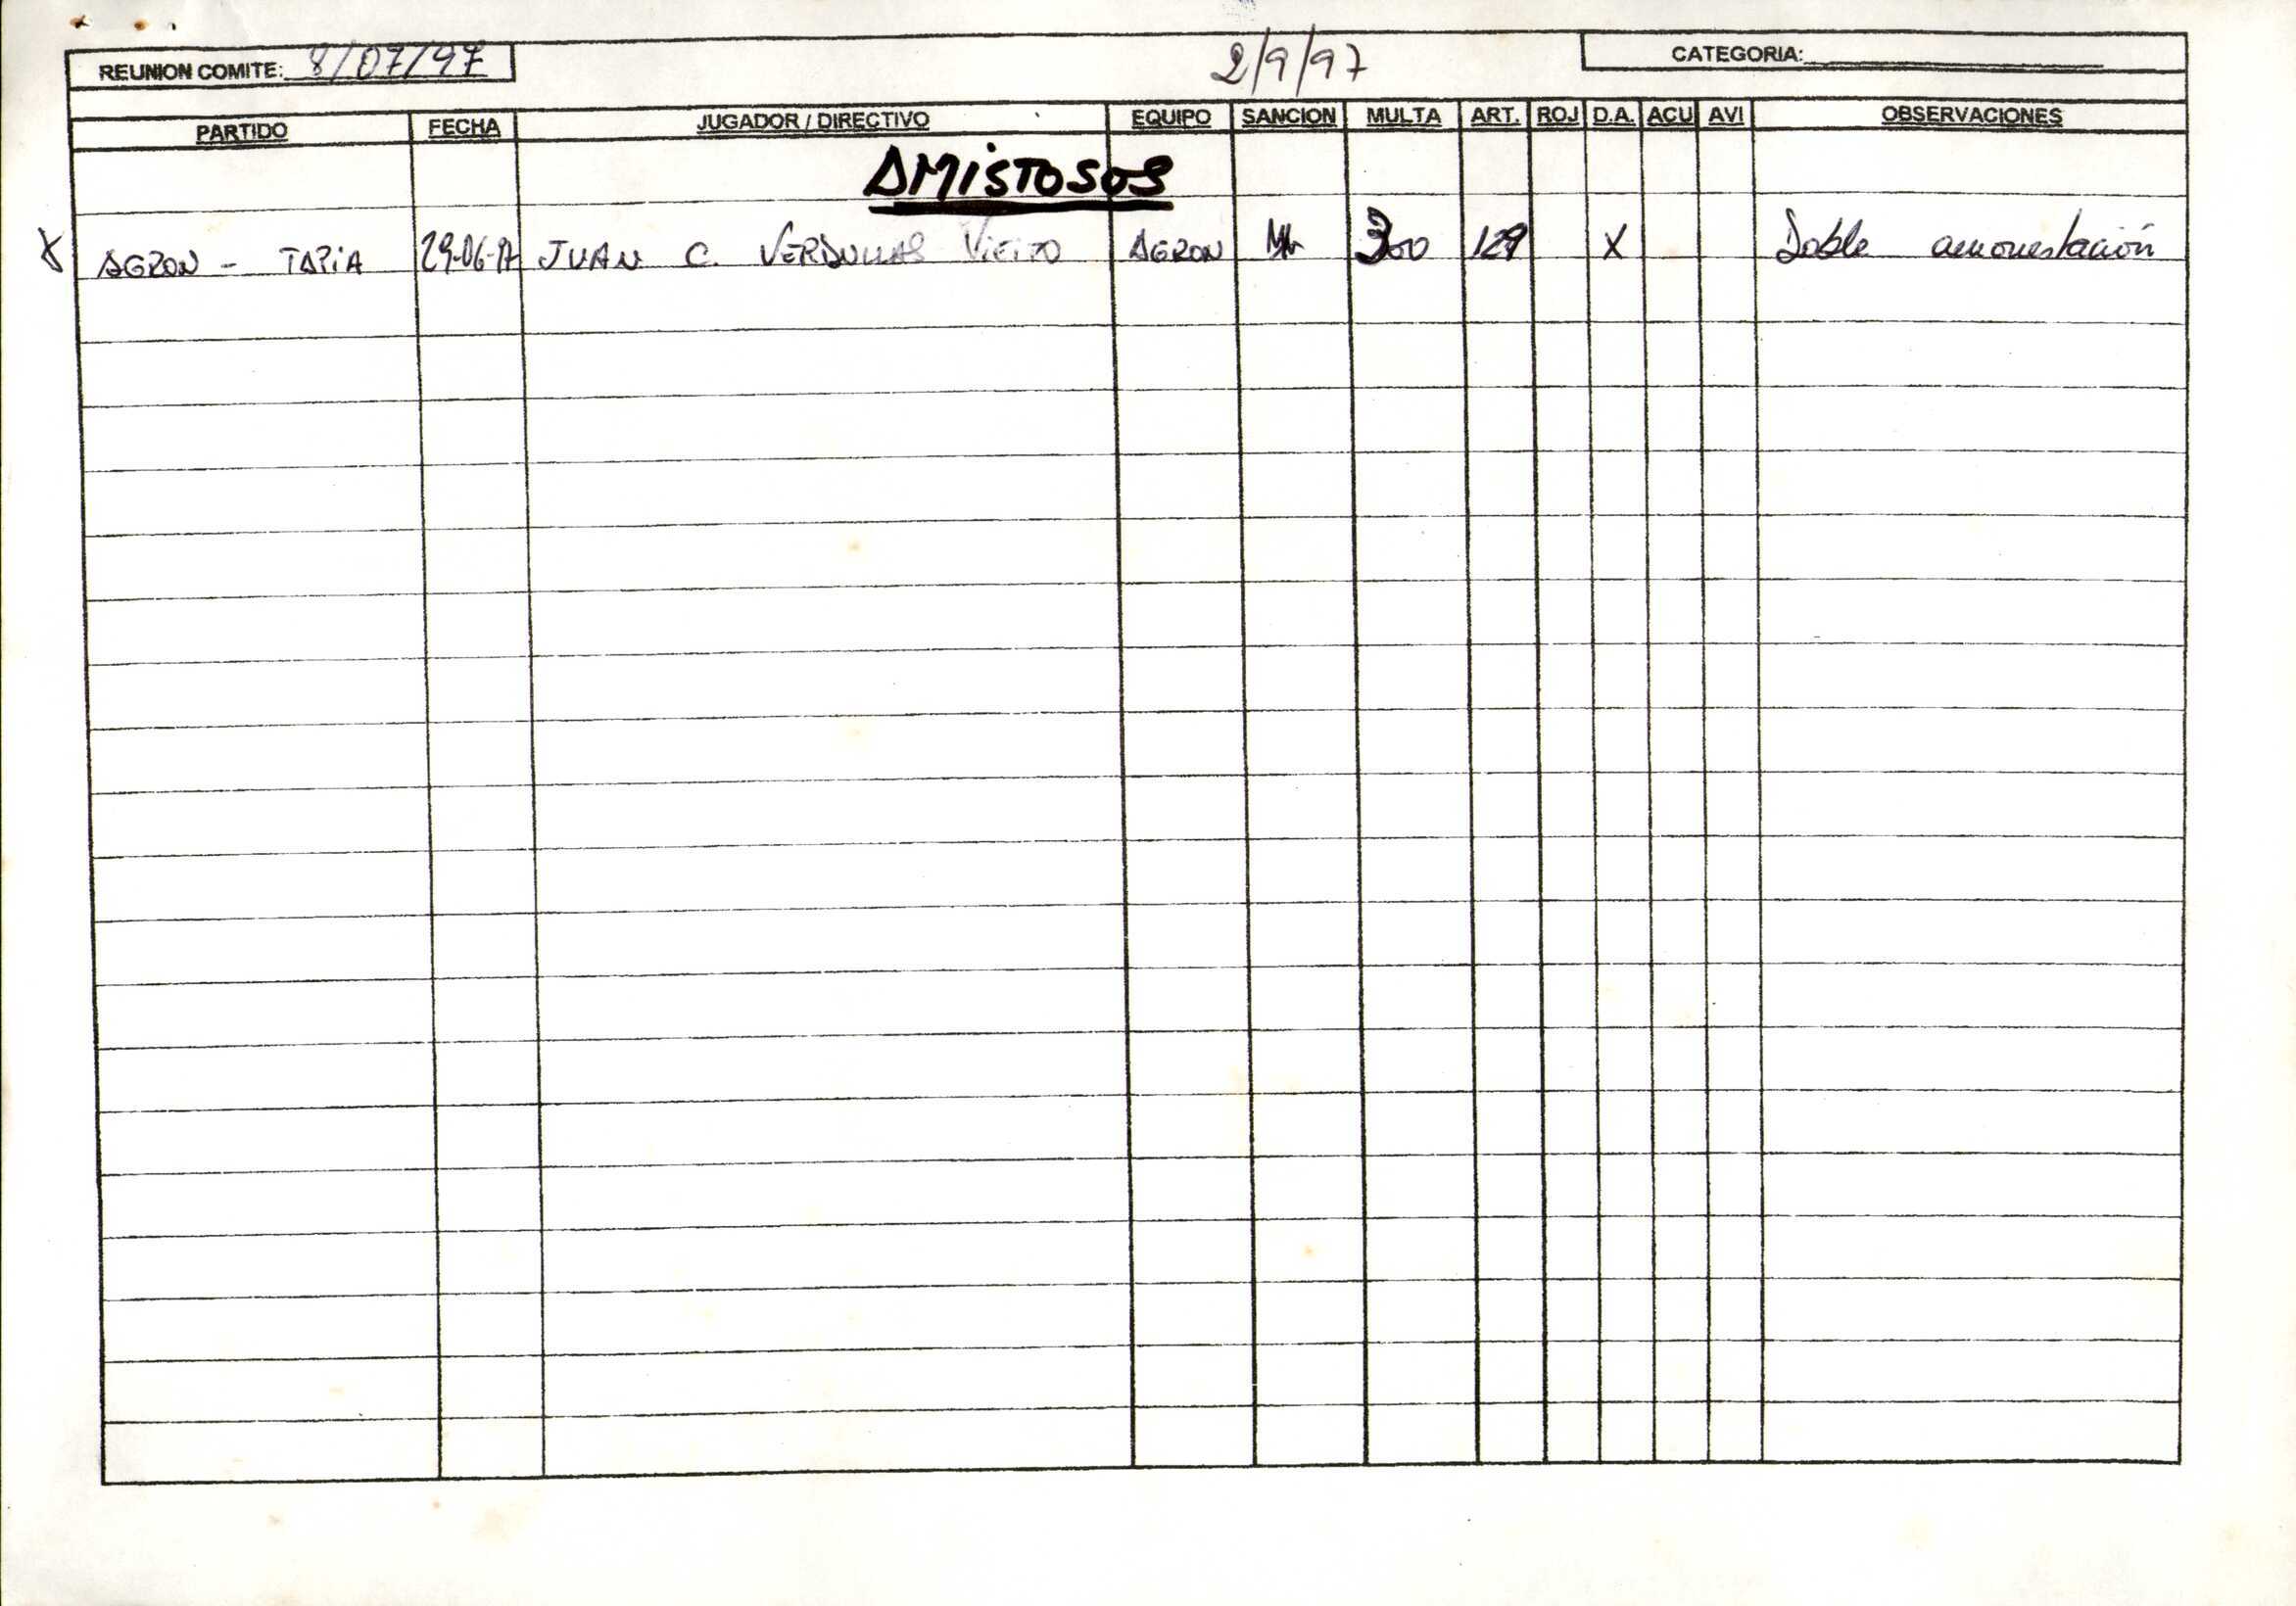 REUNION COMITE: 8/07/97 2/9/97 CATEGORIA:
PARTIDO FECHA JUGADOR / DIRECTIVO EQUIPO SANCION MULTA ART. ROJ D.A. ACU AVI OBSERVACIONES
AMISTOSOS
X AGRON - TAPIA 29-06-97 JUAN C. VIEITO AGRON 300 129 X Doble amonestación